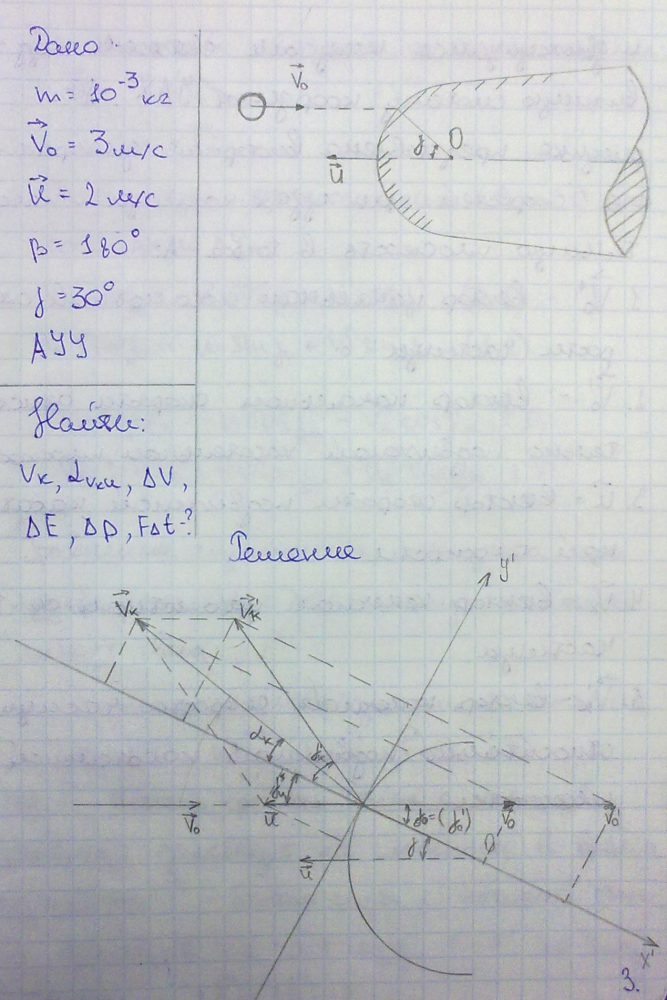 Дано:
m = 10⁻³ кг
V₀ = 3 м/с
u = 2 м/с
β = 180°
γ = 30°
АУУ
Найти:
Vк, αVкu, ΔV,
ΔE, Δp, FΔt-?
V₀
u
γ
O
Решение
y'
Vк
Vк'
αк
γк'
V₀
u
γ₀=(γ₀')
V₀
V₀'
γ
O
u
x'
3.